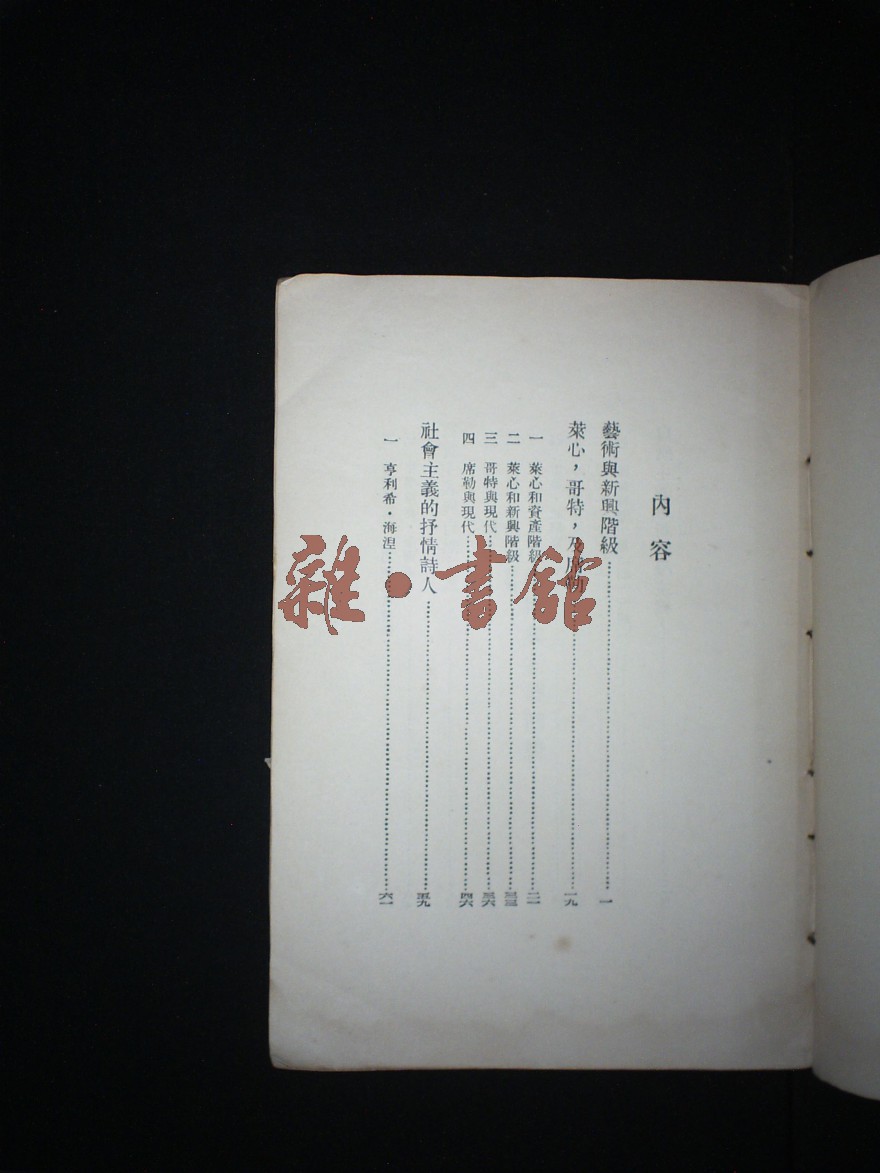 內容
藝術與新興階級 一
萊心，哥特，及席勒 一九
一 萊心和資產階級 二一
二 萊心和新興階級 三三
三 哥特與現代 三六
四 席勒與現代 四六
社會主義的抒情詩人 五九
一 亨利希·海涅 六一
雜·書館